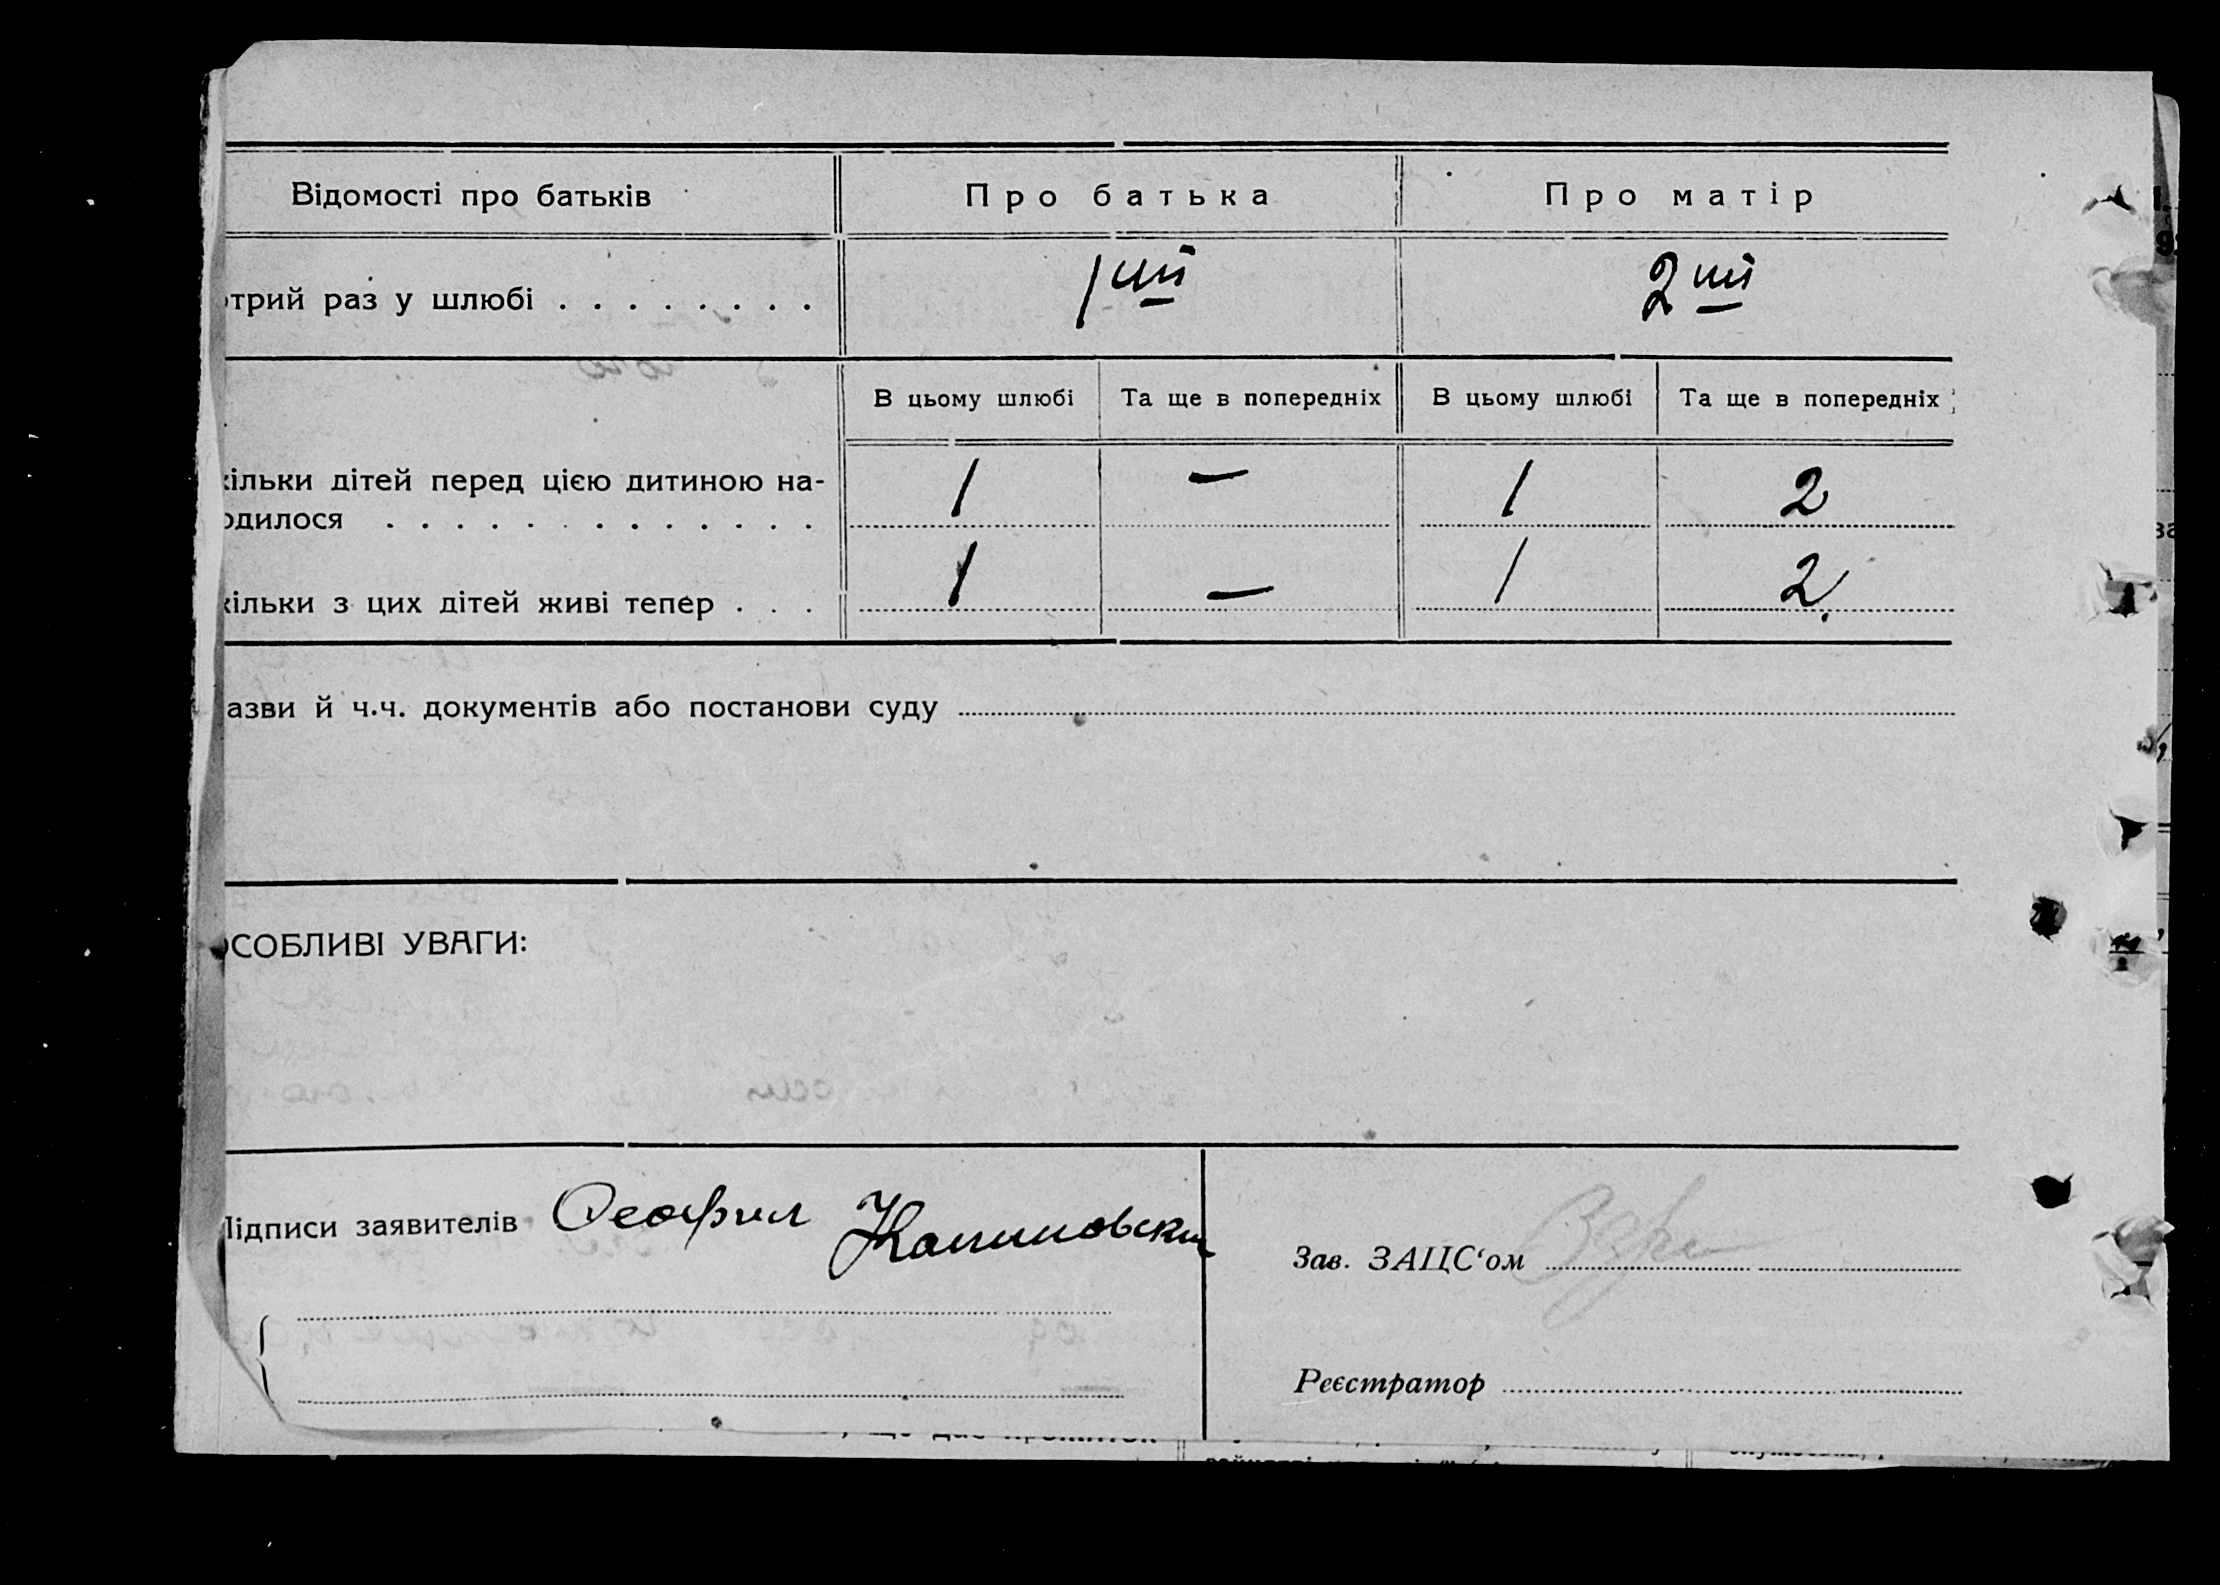 Відомості про батьків Про батька Про матір
отрий раз у шлюбі . . . . . . . . 1ий 2ий
В цьому шлюбі Та ще в попередніх В цьому шлюбі Та ще в попередніх
кільки дітей перед цією дитиною на-
одилося . . . . . . . . . . . . . 1 — 1 2
кільки з цих дітей живі тепер . . . 1 — 1 2
азви й ч.ч. документів або постанови суду
ОСОБЛИВІ УВАГИ:
Підписи заявителів Феофил
Зав. ЗАЦС‘ом
Реєстратор